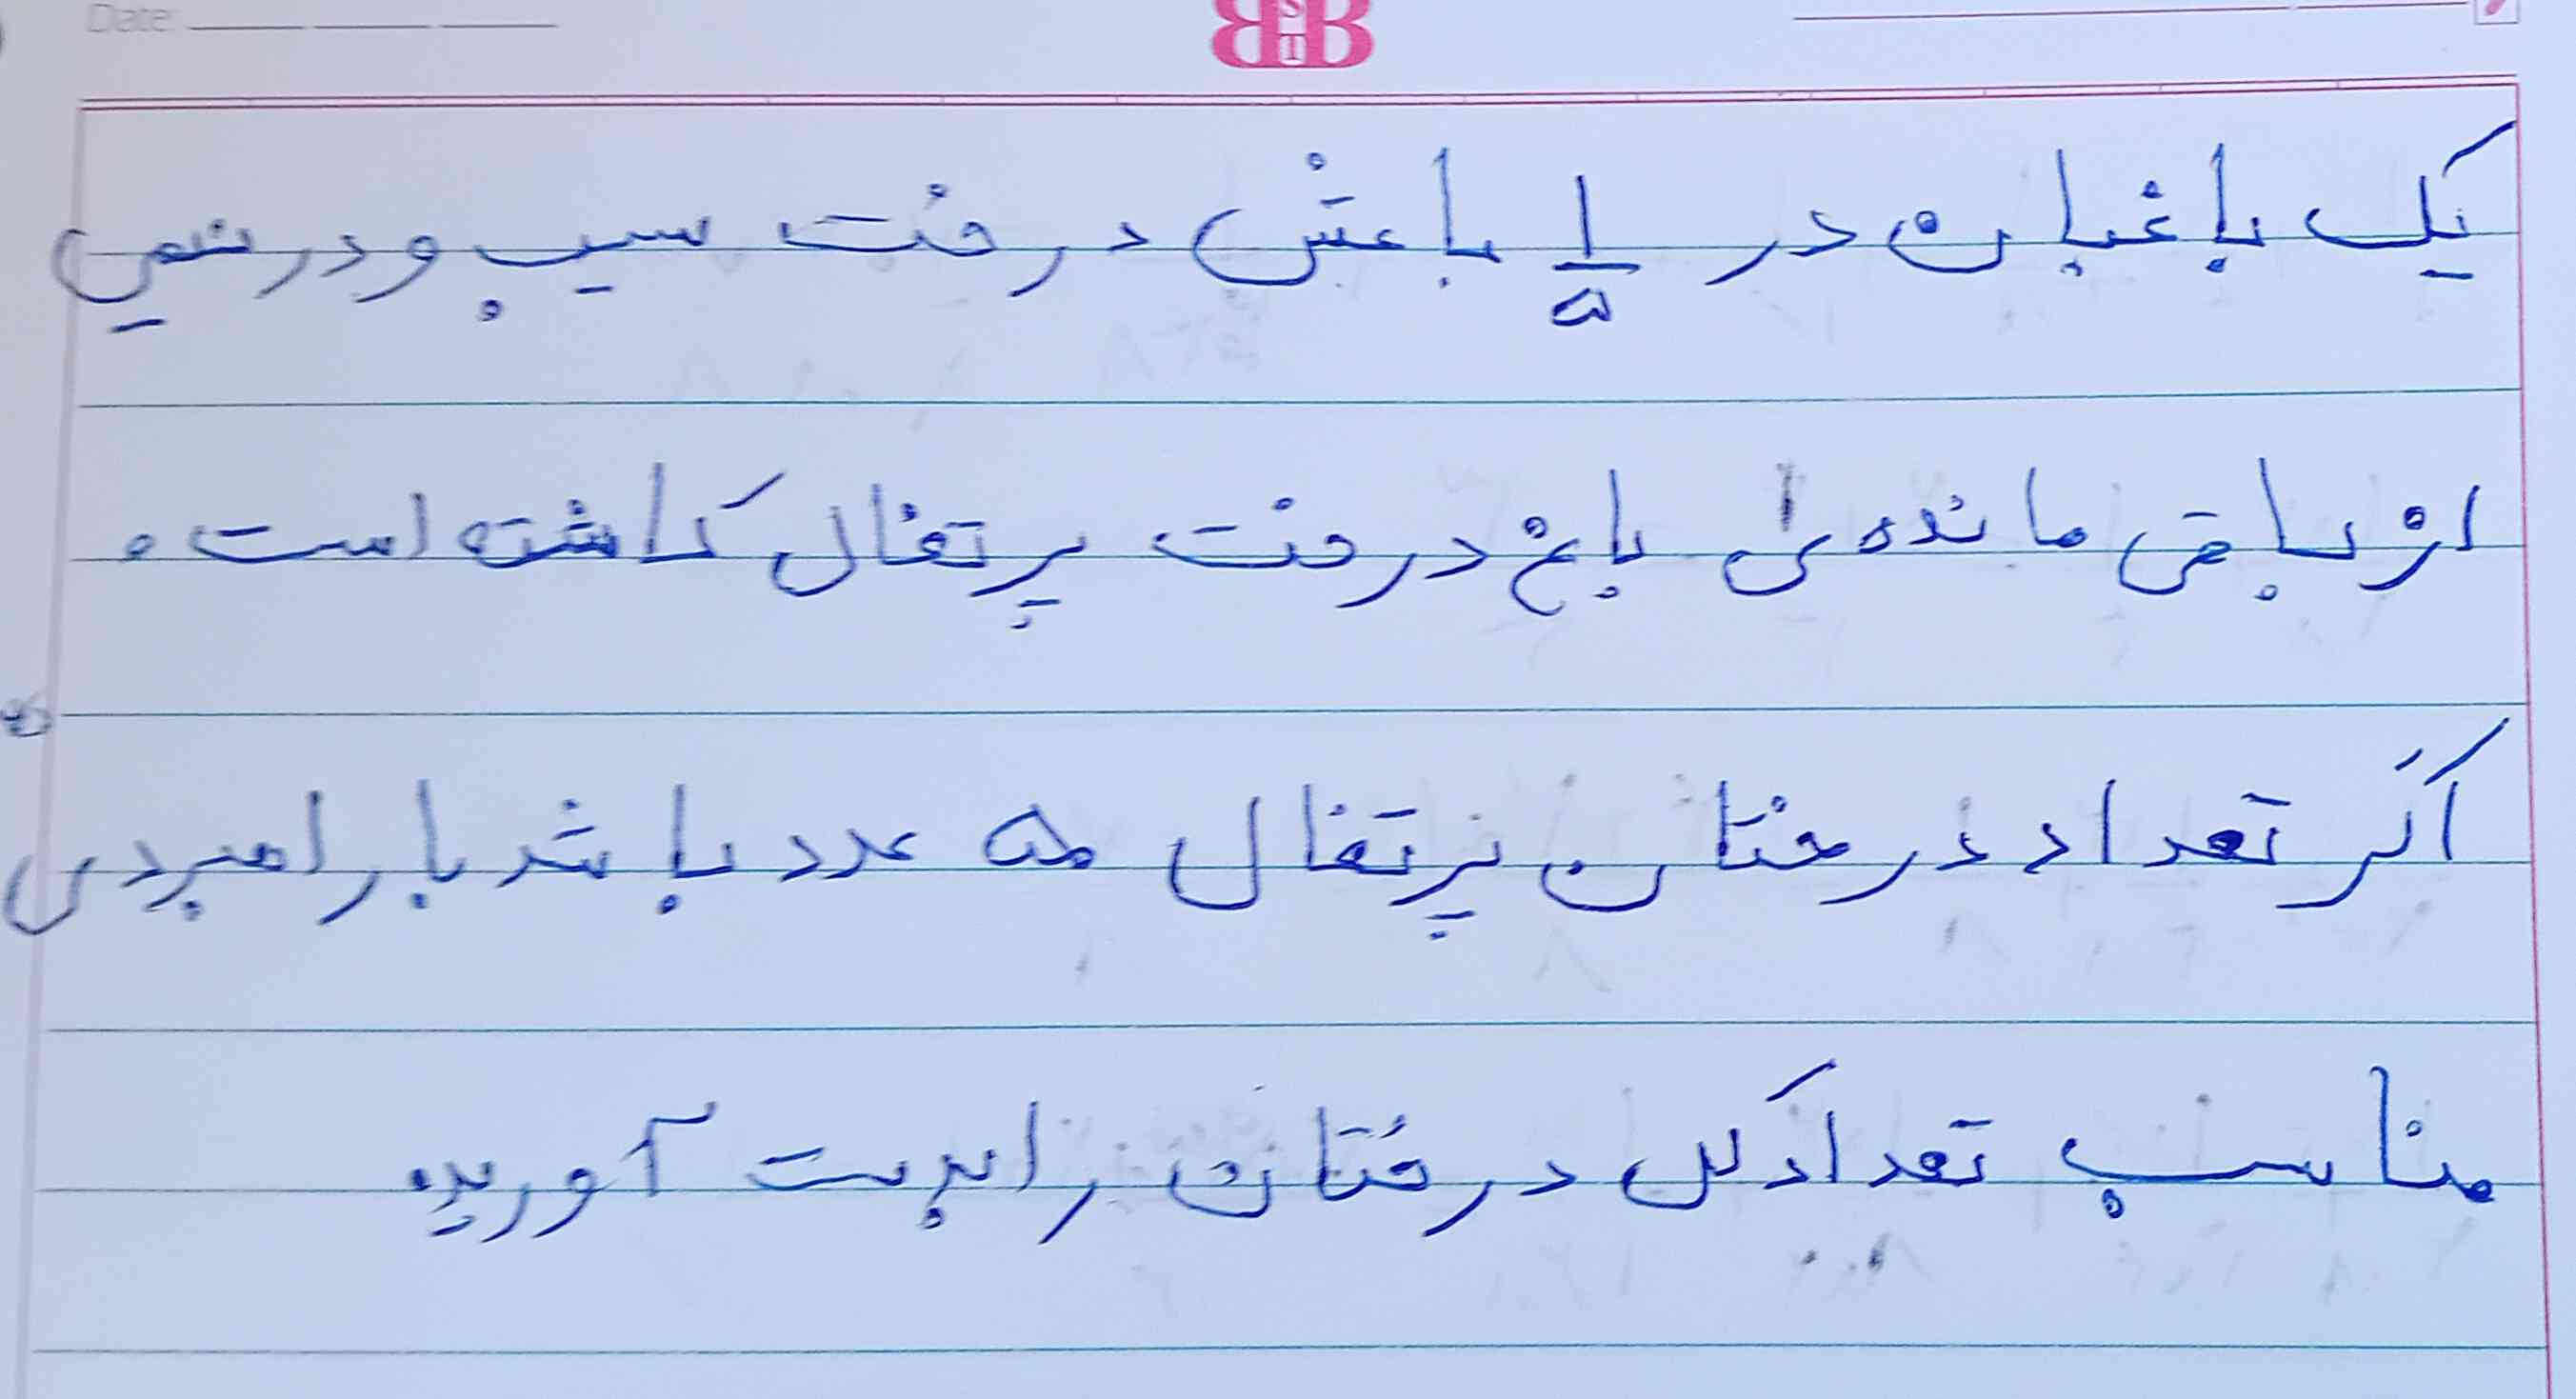 Date:
یک باغبان در ۱/۵ باغش درخت سیب و در نیمی
از باقی مانده ی باغ درخت پرتغال کاشته است.
اگر تعداد درختان پرتغال ۴۵ عدد باشد با راهبردی
مناسب تعداد کل درختان را بدست آورید.